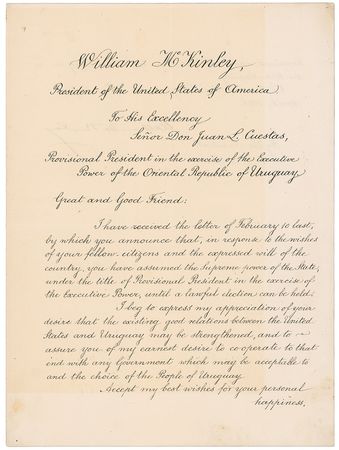 William McKinley,
President of the United States of America
To His Excellency
Señor Don Juan L. Cuestas,
Provisional President in the exercise of the Executive
Power of the Oriental Republic of Uruguay
Great and Good Friend:
I have received the letter of February 10 last,
by which you announce that, in response to the wishes
of your fellow-citizens and the expressed will of the
country, you have assumed the Supreme power of the State,
under the title of Provisional President in the exercise of
the Executive Power, until a lawful election can be held.
I beg to express my appreciation of your
desire that the existing good relations between the United
States and Uruguay may be strengthened, and to
assure you of my earnest desire to co-operate to that
end with any Government which may be acceptable to
and the choice of the People of Uruguay
Accept my best wishes for your personal
happiness.